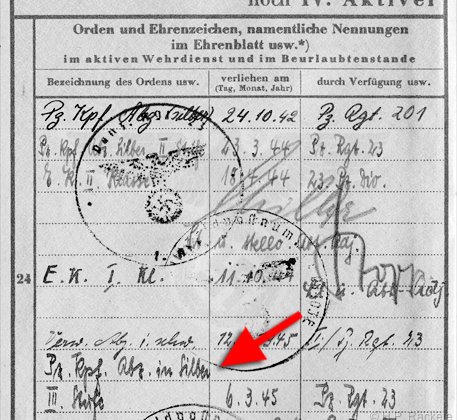 noch IV. Aktiver
Orden und Ehrenzeichen, namentliche Nennungen
im Ehrenblatt usw.*)
im aktiven Wehrdienst und im Beurlaubtenstande
Bezeichnung des Ordens usw. verliehen am durch Verfügung usw.
(Tag, Monat, Jahr)
Pz. Kpf. Abz. Silber 24.10.42 Pz. Rgt. 201
Pz. Kpf. Abz. Silber II. 23.3.44 Pz. Rgt. 23
E. K. II. Klasse 18.4.44 23. Pz. Div.
24 E. K. I. Kl. 11.10.44
Verw. Abz. i. schw. 12. 45 Rgt. 23
Pz. Kpf. Abz. in Silber
III. Stufe 6.3.45 Pz. Rgt. 23